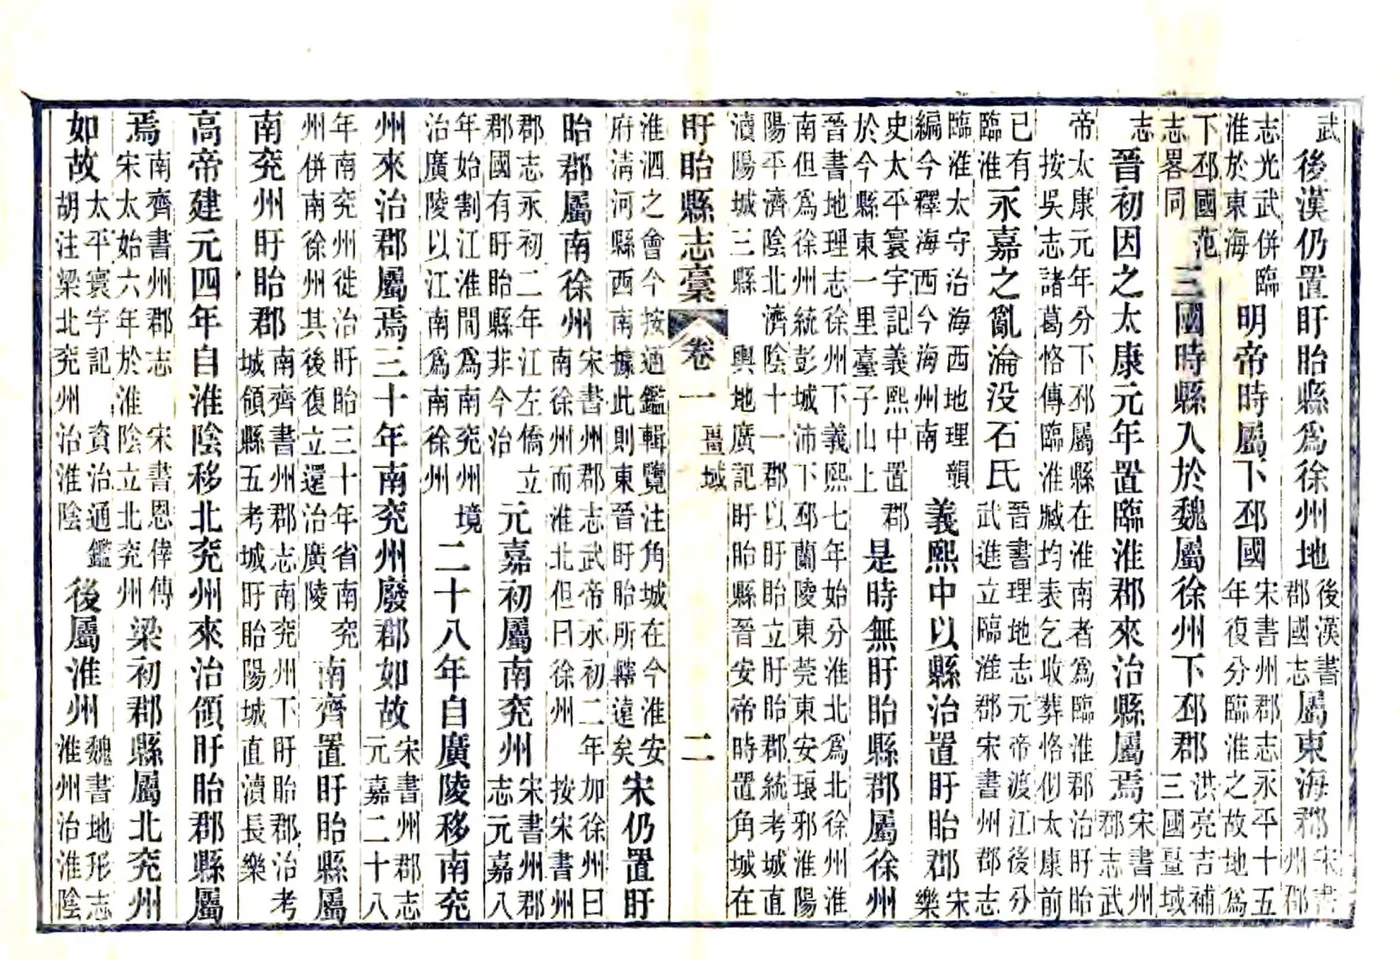 武後漢仍置盱眙縣爲徐州地後漢書郡國志屬東海郡宋書州郡
志光武併臨淮於東海明帝時屬下邳國宋書州郡志永平十五年復分臨淮之故地爲
下邳國范志畧同三國時縣入於魏屬徐州下邳郡洪亮吉補三國畺域
志晉初因之太康元年置臨淮郡來治縣屬焉宋書州郡志武
帝太康元年分下邳屬縣在淮南者爲臨淮郡治盱眙按吳志諸葛恪傳臨淮臧均表乞收葬恪似太康前
已有臨淮永嘉之亂淪没石氏晉書理地志元帝渡江後分武進立臨淮郡宋書州郡志
臨淮太守治海西地理韻編今釋海西今海州南義熙中以縣治置盱眙郡宋樂
史太平寰宇記義熙中置郡於今縣東一里臺子山上是時無盱眙縣郡屬徐州
晉書地理志徐州下義熙七年始分淮北爲北徐州淮南但爲徐州統彭城沛下邳蘭陵東莞東安琅邪淮陽
陽平濟陰北濟陰十一郡以盱眙立盱眙郡統考城直瀆陽城三縣輿地廣記盱眙縣晉安帝時置角城在
盱眙縣志稾卷一畺域二
淮泗之會今按通鑑輯覽注角城在今淮安府淸河縣西南據此則東晉盱眙所轄遠矣宋仍置盱
眙郡屬南徐州宋書州郡志武帝永初二年加徐州曰南徐州而淮北但曰徐州按宋書州
郡志永初二年江左僑立郡國有盱眙縣非今治元嘉初屬南兗州宋書州郡志元嘉八
年始割江淮間爲南兗州境治廣陵以江南爲南徐州二十八年自廣陵移南兗
州來治郡屬焉三十年南兗州廢郡如故宋書州郡志元嘉二十八
年南兗州徙治盱眙三十年省南兗州併南徐州其後復立還治廣陵南齊置盱眙縣屬
南兗州盱眙郡南齊書州郡志南兗州下盱眙郡治考城領縣五考城盱眙陽城直瀆長樂
高帝建元四年自淮陰移北兗州來治領盱眙郡縣屬
焉南齊書州郡志宋書恩倖傳宋太始六年於淮陰立北兗州梁初郡縣屬北兗州
如故太平寰宇記資治通鑑胡注梁北兗州治淮陰後屬淮州魏書地形志淮州治淮陰